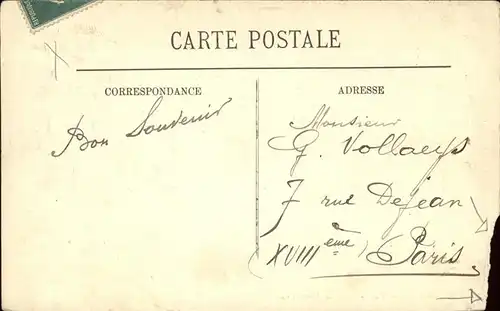 CARTE POSTALE
CORRESPONDANCE
ADRESSE
Bon Souvenir
Monsieur
G. Vollaeys
7 rue Dejean
(XVIIIème) Paris